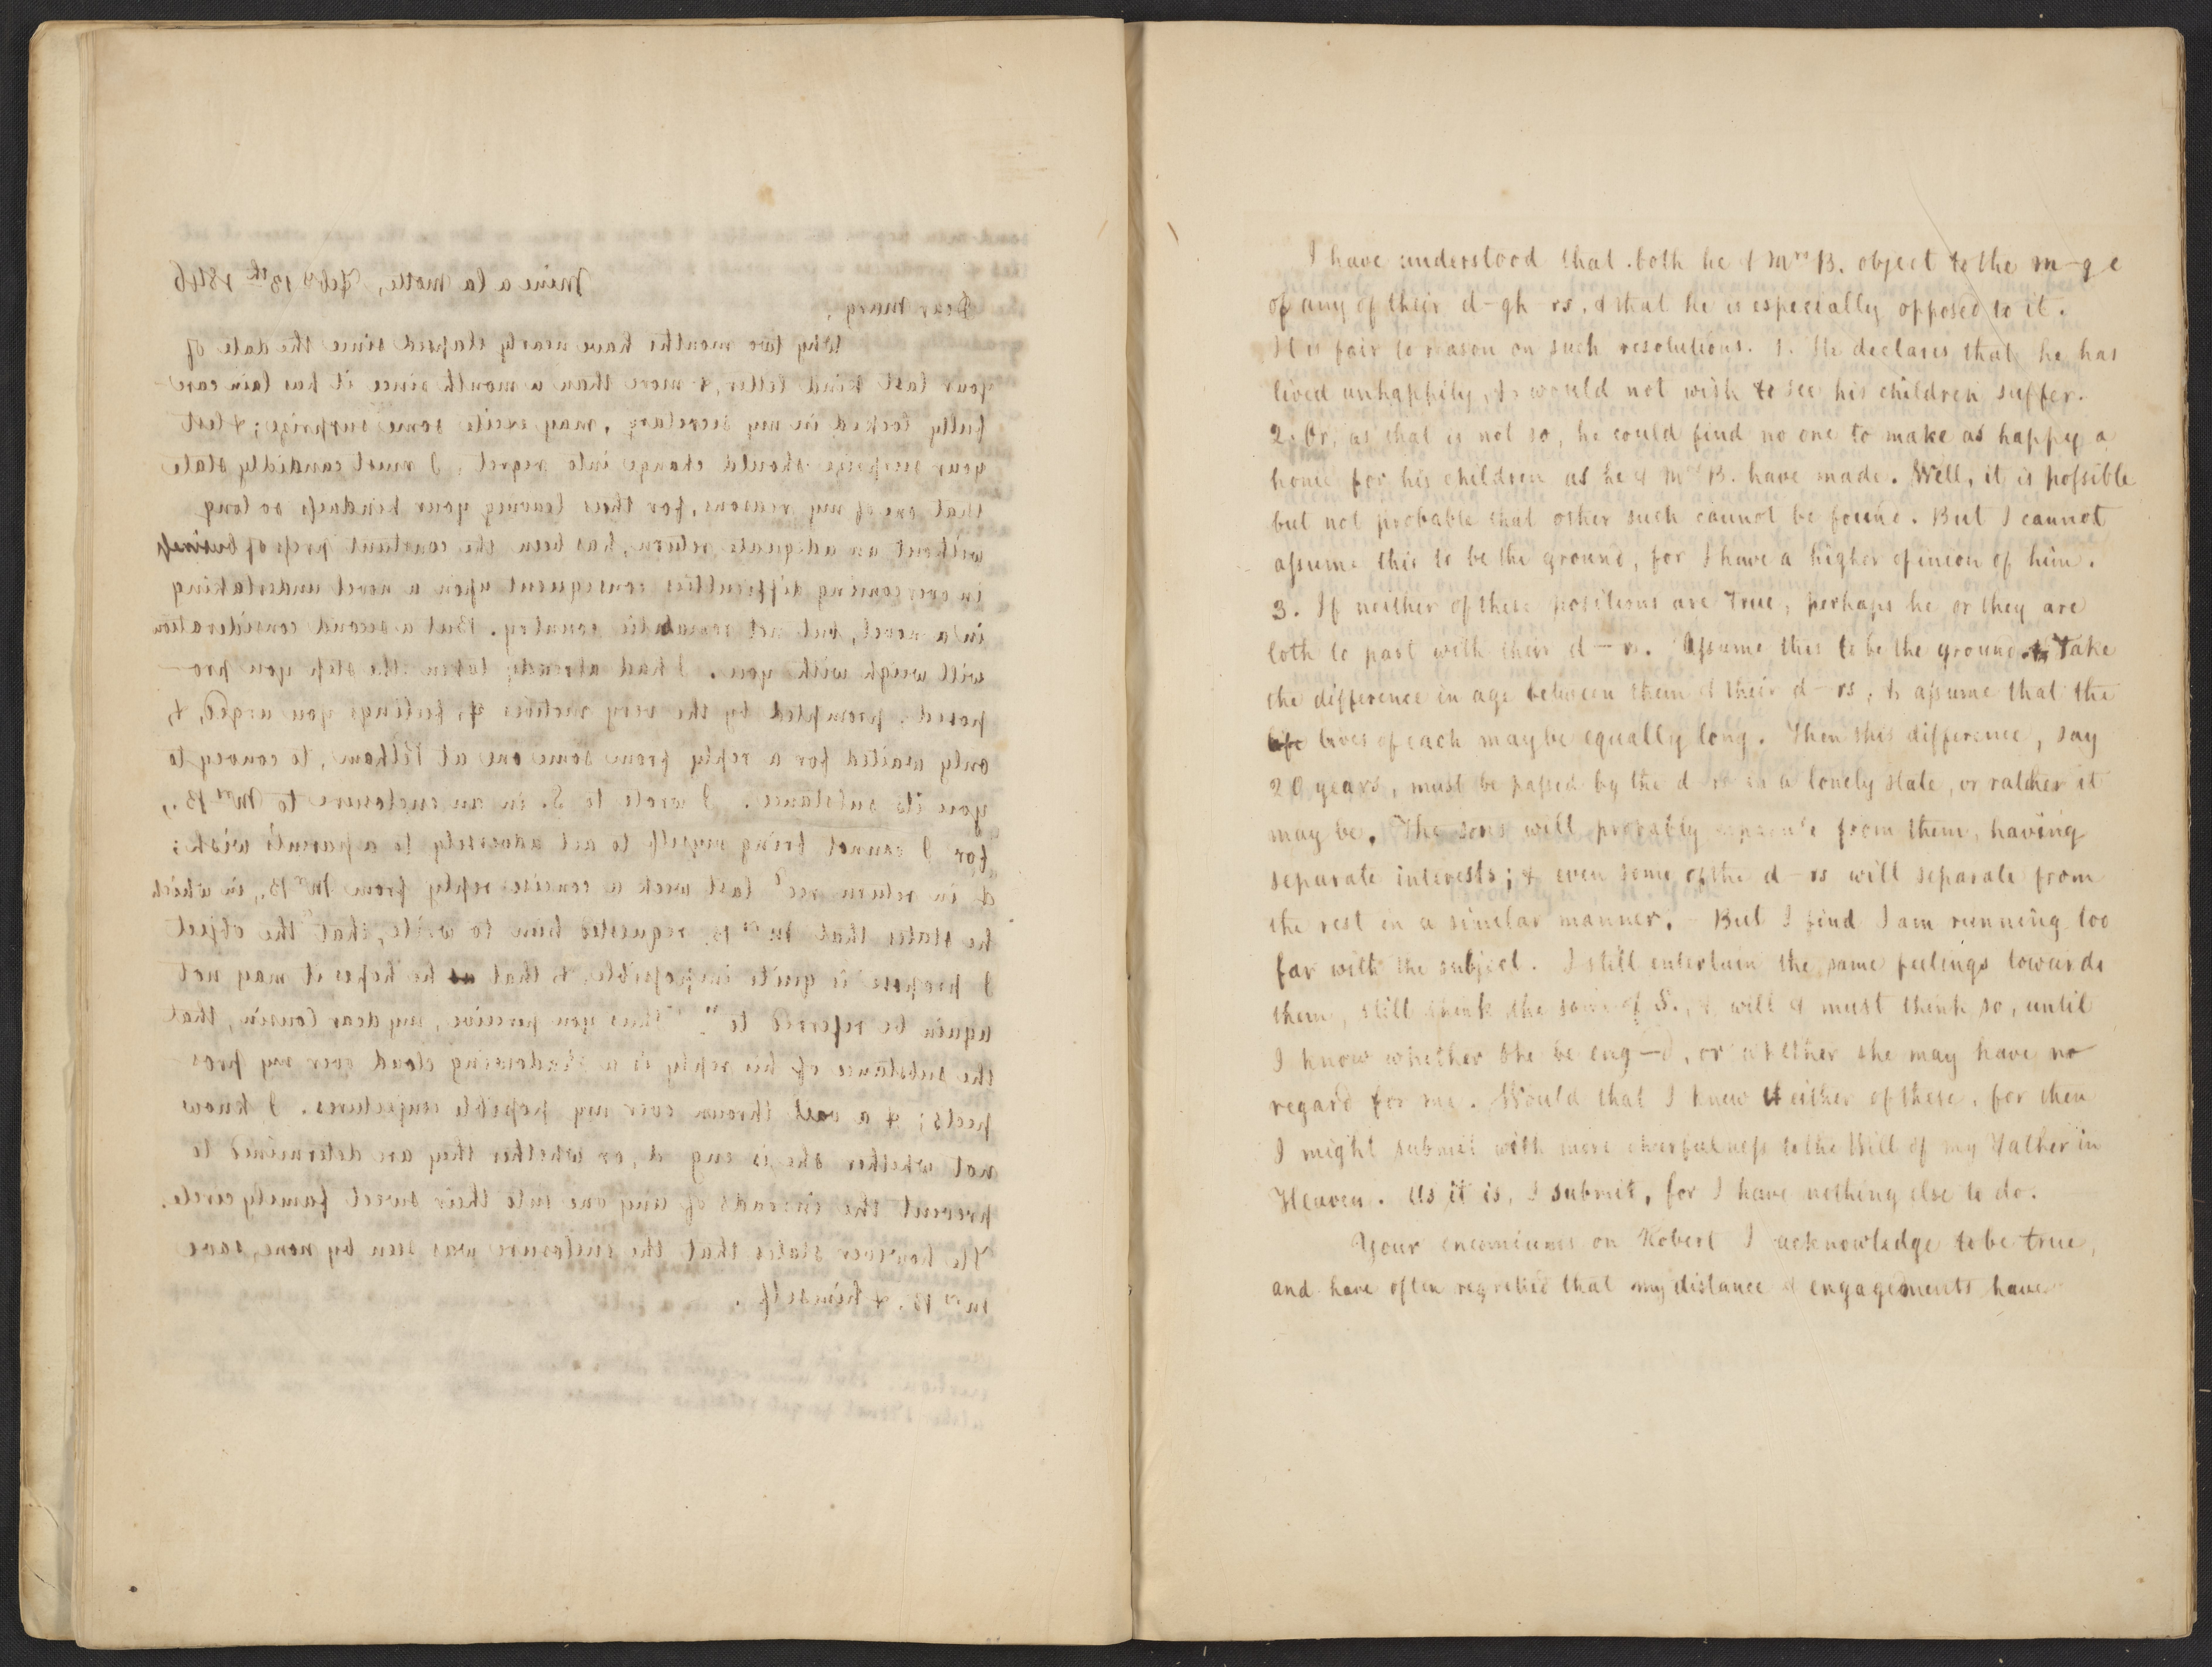 Mine a la Motte, Feby 13th 1846
Dear Marg,
Why two months have nearly elapsed since the date of
your last kind letter, & more than a month since it has lain care-
fully locked in my secretary, may excite some surprize; & lest
your surprize should change into regret, I must candidly state
that one of my reasons, for thus leaving your kindneſs so long
without an adequate return, has been the constant preſs of busineſs
in overcoming difficulties consequent upon a novel undertaking
in a novel, but not romantic country. But a second consideration
will weigh with you. I had already taken the step you pro-
posed, prompted by the very motives & feelings you urged, &
only waited for a reply from some one at Pelham, to convey to
you its substance. I wrote to S. in an enclosure to Mrs B.,
for I cannot bring myself to act adversely to a parent's wish;
& in return recd last week a concise reply from Mr B., in which
he states that Mrs B. requested him to write, "that the object
I propose is quite impoſsible, & that he hopes it may not
again be referred to". Thus you perceive, my dear Cousin, that
the substance of his reply is a shadowing cloud over my pros-
pects; & a veil thrown over my poſsible conjectures. I know
not whether she is eng d, or whether they are determined to
prevent the inroads of any one into their sweet family circle.
He however states that the enclosure was seen by none, save
Mrs B. & himself.
I have understood that both he & Mrs B. object to the m-g e
of any of their d-gh rs, & that he is especially opposed to it.
It is fair to reason on such resolutions. 1. He declares that he has
lived unhappily, & would not wish to see his children suffer.
2. Or, as that is not so, he could find no one to make as happy a
home for his children as he & Mrs B. have made. Well, it is poſsible
but not probable that other such cannot be found. But I cannot
aſsume this to be the ground, for I have a higher opinion of him.
3. If neither of these positions are true, perhaps he or they are
loth to part with their d-rs. Aſsume this to be the ground. Take
the difference in age between them & their d-rs, & aſsume that the
lives of each may be equally long. Then this difference, say
20 years, must be paſsed by the d rs in a lonely state, or rather it
may be. The sons will probably separate from them, having
separate interests; & even some of the d-rs will separate from
the rest in a similar manner. - But I find I am running too
far with the subject. I still entertain the same feelings towards
them, still think the same of S., & will & must think so, until
I know whether she be eng-d, or whether she may have no
regard for me. Would that I knew either of these, for then
I might submit with more cheerfulneſs to the Will of my Father in
Heaven. As it is, I submit, for I have nothing else to do.
Your encomiums on Robert I acknowledge to be true,
and have often regretted that my distance & engagements have